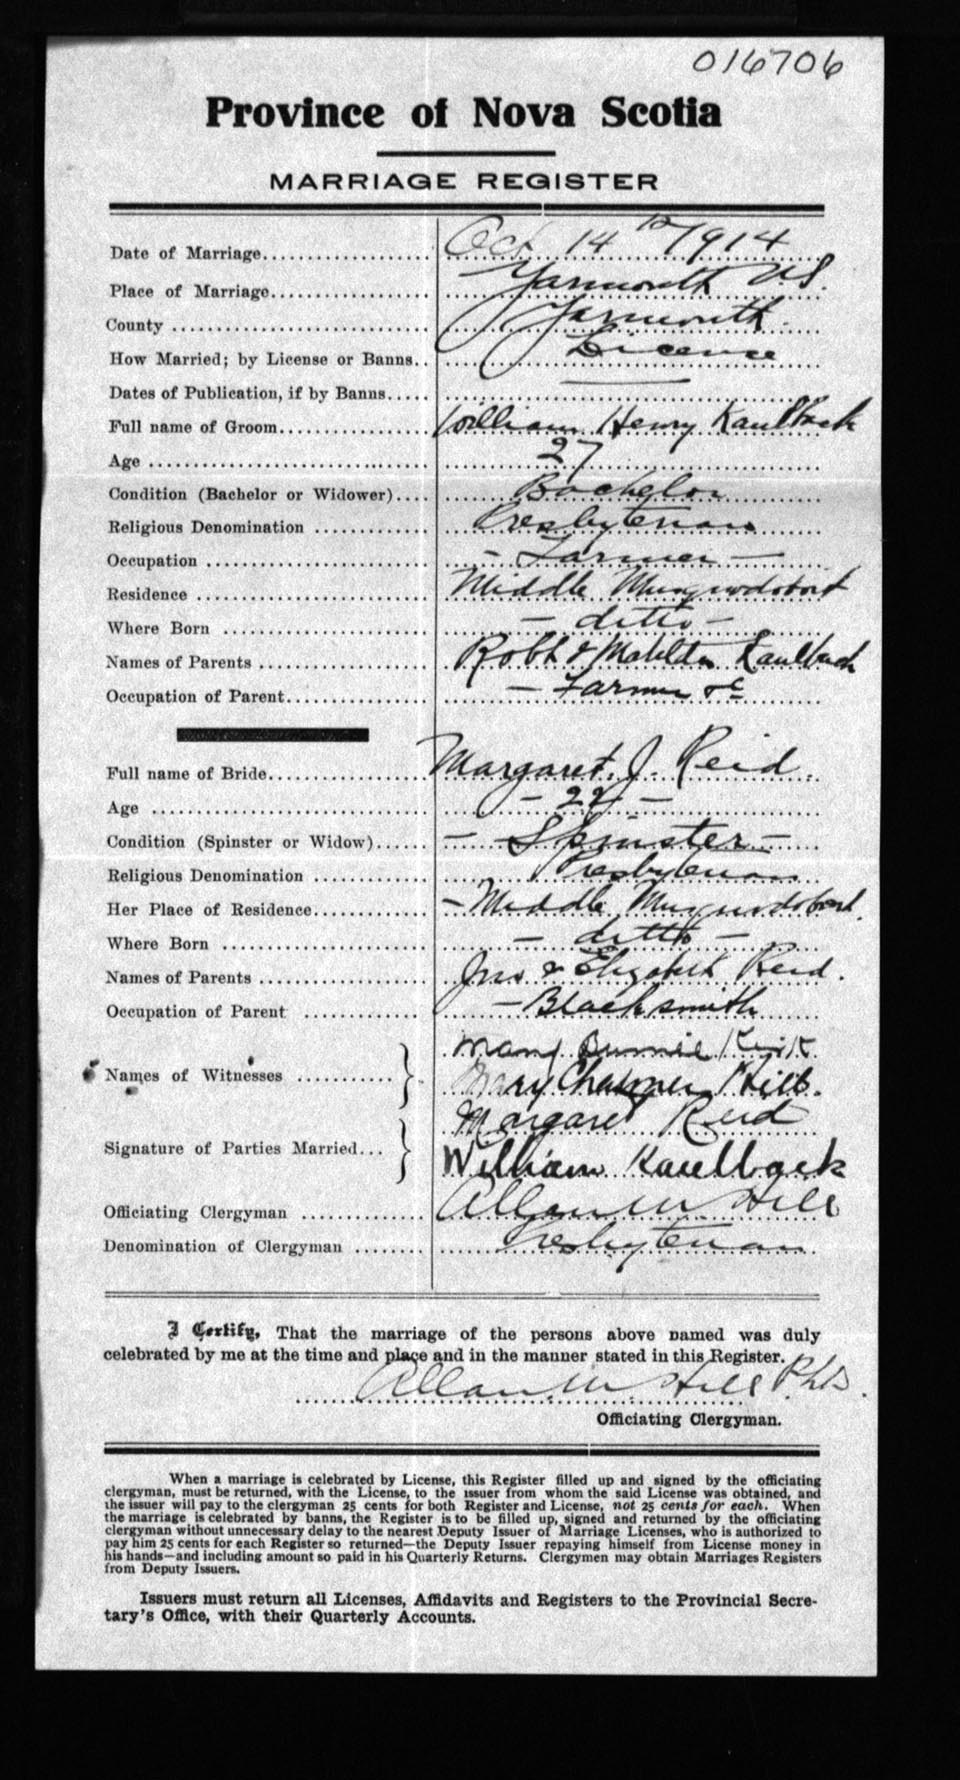 016706
Province of Nova Scotia
MARRIAGE REGISTER
Date of Marriage.................... Oct 14th/1914
Place of Marriage................... Yarmouth N.S.
County ............................... Yarmouth
How Married; by License or Banns.. Licence
Dates of Publication, if by Banns..... ———
Full name of Groom.................. William Henry Kaulback
Age .................................. 27
Condition (Bachelor or Widower).... Bachelor
Religious Denomination ............. Presbyterian
Occupation .......................... – Farmer –
Residence ........................... Middle Musquodoboit
Where Born ........................ – ditto –
Names of Parents .................... Robt & Matilda Kaulback
Occupation of Parent................. – Farmer &c
Full name of Bride................... Margaret. J. Reid.
Age .................................. – 22 –
Condition (Spinster or Widow)...... – Spinster –
Religious Denomination ............. Presbyterian
Her Place of Residence.............. – Middle Musquodoboit.
Where Born ........................ – ditto –
Names of Parents .................... Jno & Elizabeth Reid.
Occupation of Parent ............. – Blacksmith
Mary Kirk
Names of Witnesses ........... } Mary Chalmers Hill.
Margaret Reid
Signature of Parties Married... } William Kaulback
Officiating Clergyman .............. Allan M Hill
Denomination of Clergyman ........ Presbyterian
I Certify, That the marriage of the persons above named was duly
celebrated by me at the time and place and in the manner stated in this Register.
Allan M. Hill
Officiating Clergyman.
When a marriage is celebrated by License, this Register filled up and signed by the officiating
clergyman, must be returned, with the License, to the issuer from whom the said License was obtained, and
the issuer will pay to the clergyman 25 cents for both Register and License, not 25 cents for each. When
the marriage is celebrated by banns, the Register is to be filled up, signed and returned by the officiating
clergyman without unnecessary delay to the nearest Deputy Issuer of Marriage Licenses, who is authorized to
pay him 25 cents for each Register so returned—the Deputy Issuer repaying himself from License money in
his hands—and including amount so paid in his Quarterly Returns. Clergymen may obtain Marriages Registers
from Deputy Issuers.
Issuers must return all Licenses, Affidavits and Registers to the Provincial Secre-
tary's Office, with their Quarterly Accounts.